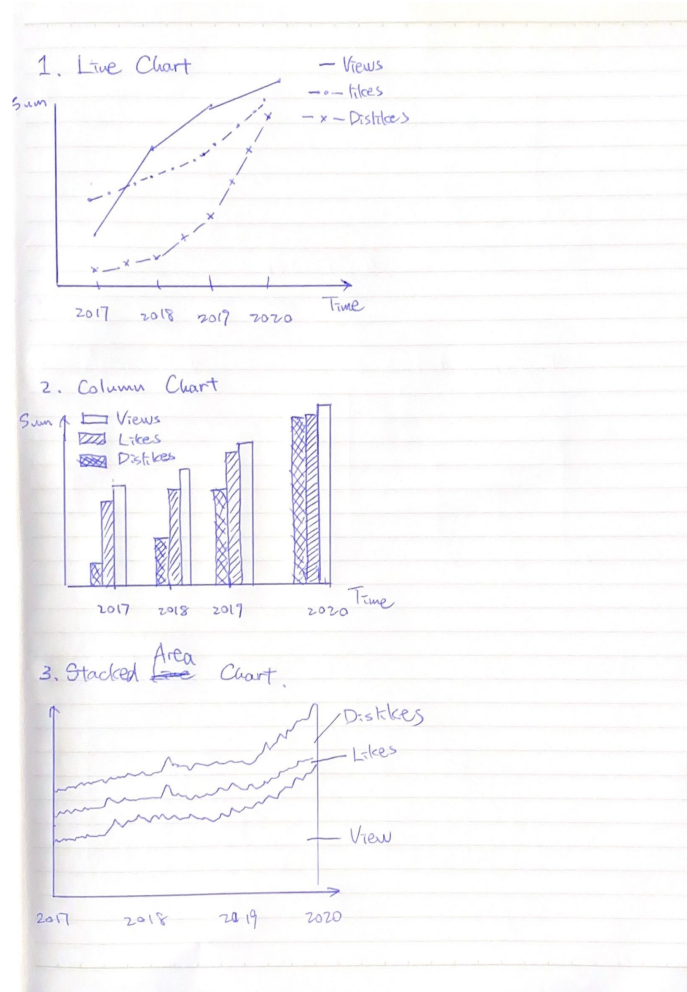 1. Line Chart
— Views
—·— Likes
— x — Dislikes
Sum
2017 2018 2019 2020
Time
2. Column Chart
Sum
Views
Likes
Dislikes
2017 2018 2019 2020
Time
3. Stacked Area Chart.
Dislikes
Likes
View
2017 2018 2019 2020